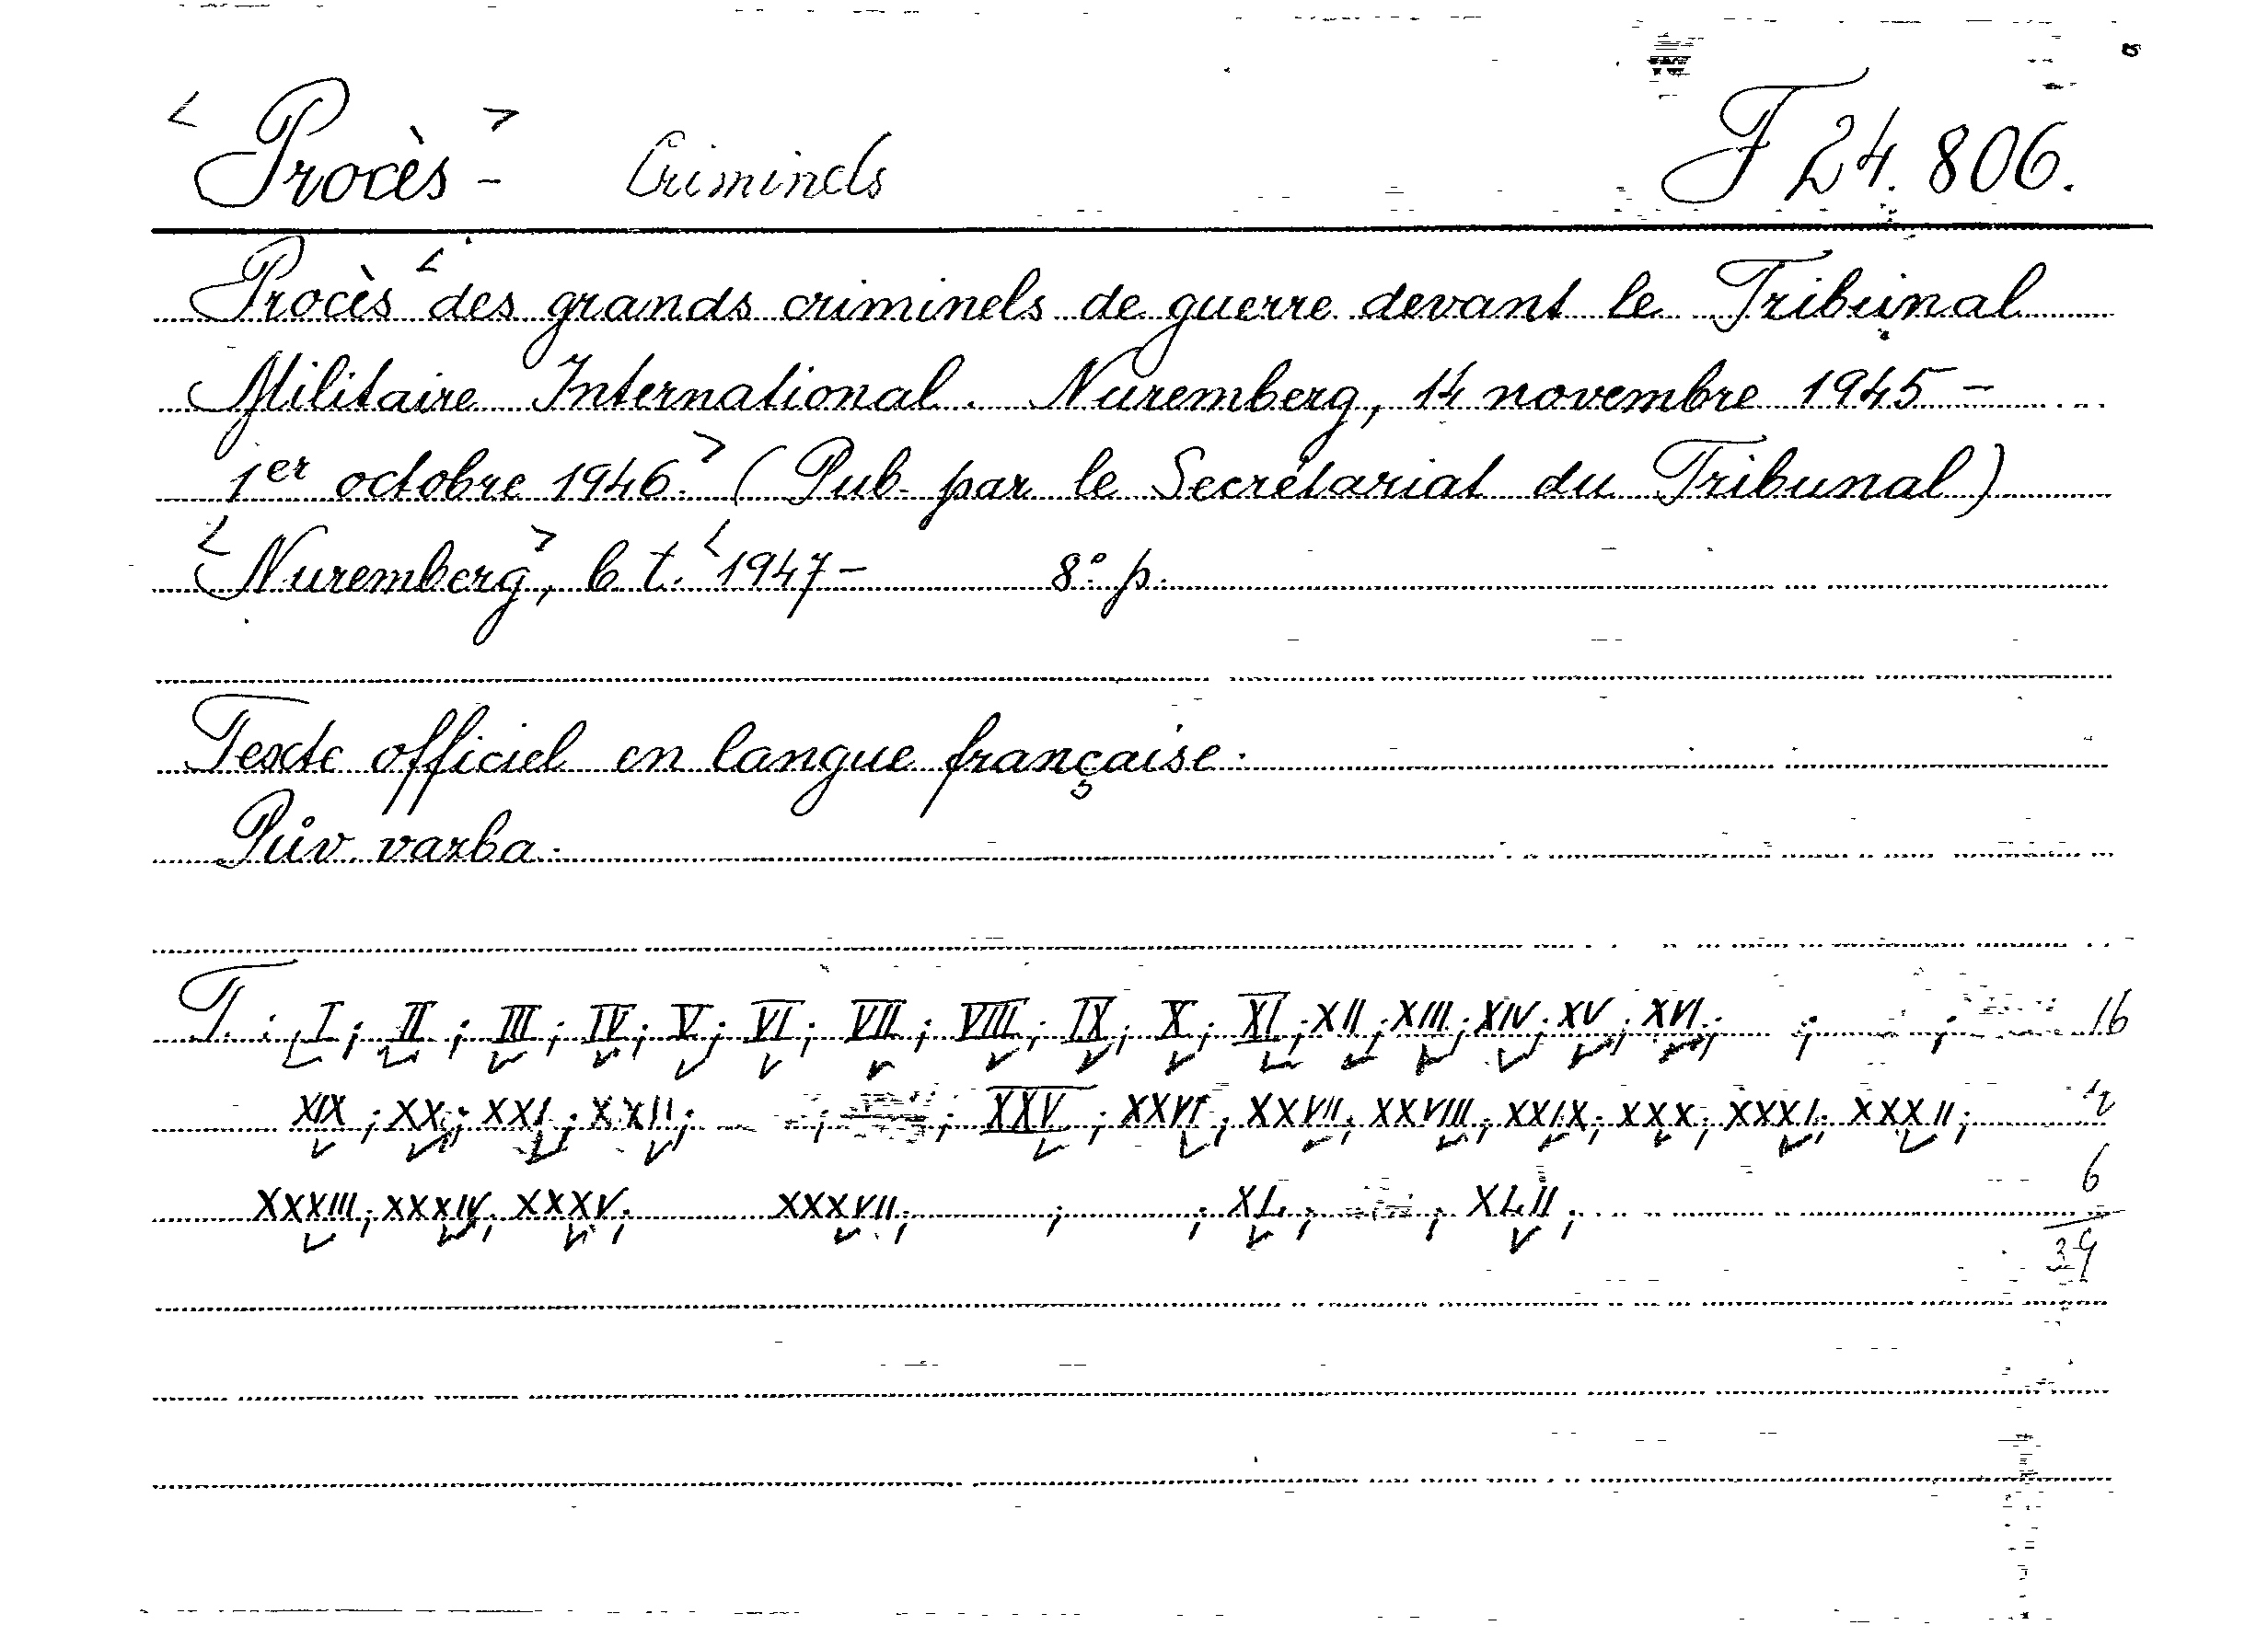 < Procès > - Criminels F 24.806.
Procès < des grands criminels de guerre devant le Tribunal
Militaire International. Nuremberg, 14 novembre 1945 -
1er octobre 1946. > (Pub. par le Secrétariat du Tribunal)
< Nuremberg >, b. t. < 1947 - 8° p.
Texte officiel en langue française.
Pův. vazba.
T. : I; II; III; IV; V; VI; VII; VIII; IX; X; XI; XII; XIII; XIV; XV; XVI; ; ; 16
XIX; XX; XXI; XXII; ; ; XXV; XXVI; XXVII; XXVIII; XXIX; XXX; XXXI; XXXII;
XXXIII; XXXIV; XXXV; XXXVII; ; ; XL; ; XLII; 6